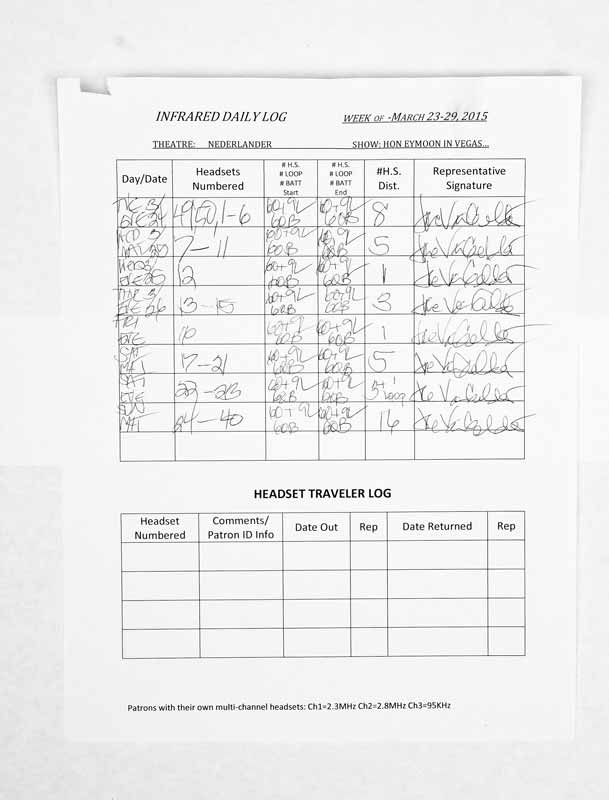 INFRARED DAILY LOG WEEK OF -MARCH 23-29, 2015
THEATRE: NEDERLANDER SHOW: HON EYMOON IN VEGAS...
Day/Date Headsets Numbered # H.S. # LOOP # BATT Start # H.S. # LOOP # BATT End #H.S. Dist. Representative Signature
TUE 3/ EVE 24 49,50,1-6 60+9L 60B 60+9L 60B 8
WED 3/ MAT 25 7-11 60+9L 60B 60+9L 60B 5
WED 3/ EVE 25 12 60+9L 60B 60+9L 60B 1
THR 3/ EVE 26 13-15 60+9L 60B 60+9L 60B 3
FRI EVE 16 60+9L 60B 60+9L 60B 1
SAT MAT 17-21 60+9L 60B 60+9L 60B 5
SAT EVE 22-23 60+9L 60B 60+9L 60B loop
SUN MAT 24-40 60+9L 60B 60+9L 60B 16
HEADSET TRAVELER LOG
Headset Numbered Comments/ Patron ID Info Date Out Rep Date Returned Rep
Patrons with their own multi-channel headsets: Ch1=2.3MHz Ch2=2.8MHz Ch3=95KHz